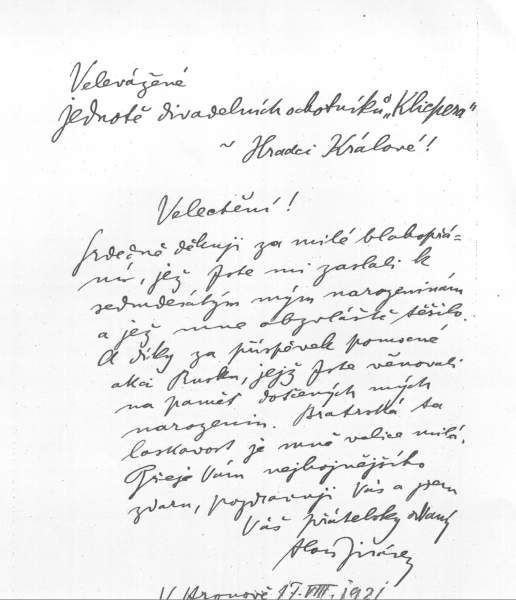 Velevážené
jednotě divadelních ochotníků „Klicpera"
v Hradci Králové!
Velectění!
Srdečně děkuji za milé blahopřá=
ní, jež jste mi zaslali k
sedmdesátým mým narozeninám
a jež mne obzvláště těšilo.
A díky za příspěvek pomocné
akci Rusku, jejž jste věnovali
na paměť dotčených mých
narozenin. Bratrská ta
laskavost je mně velice milá.
Přeje Vám nejhojnějšího
zdaru, pozdravuji Vás a jsem
Váš přátelsky oddaný
Alois Jirásek
V Hronově 17. VIII. 1921